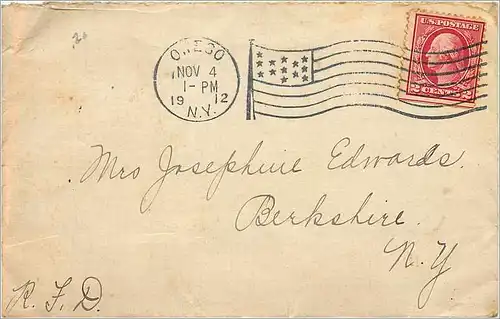 20
OWEGO
NOV 4
1-PM
19 12
N.Y.
U.S. POSTAGE
2 CENTS 2
Mrs Josephine Edwards.
Berkshire.
N.Y
R.F.D.